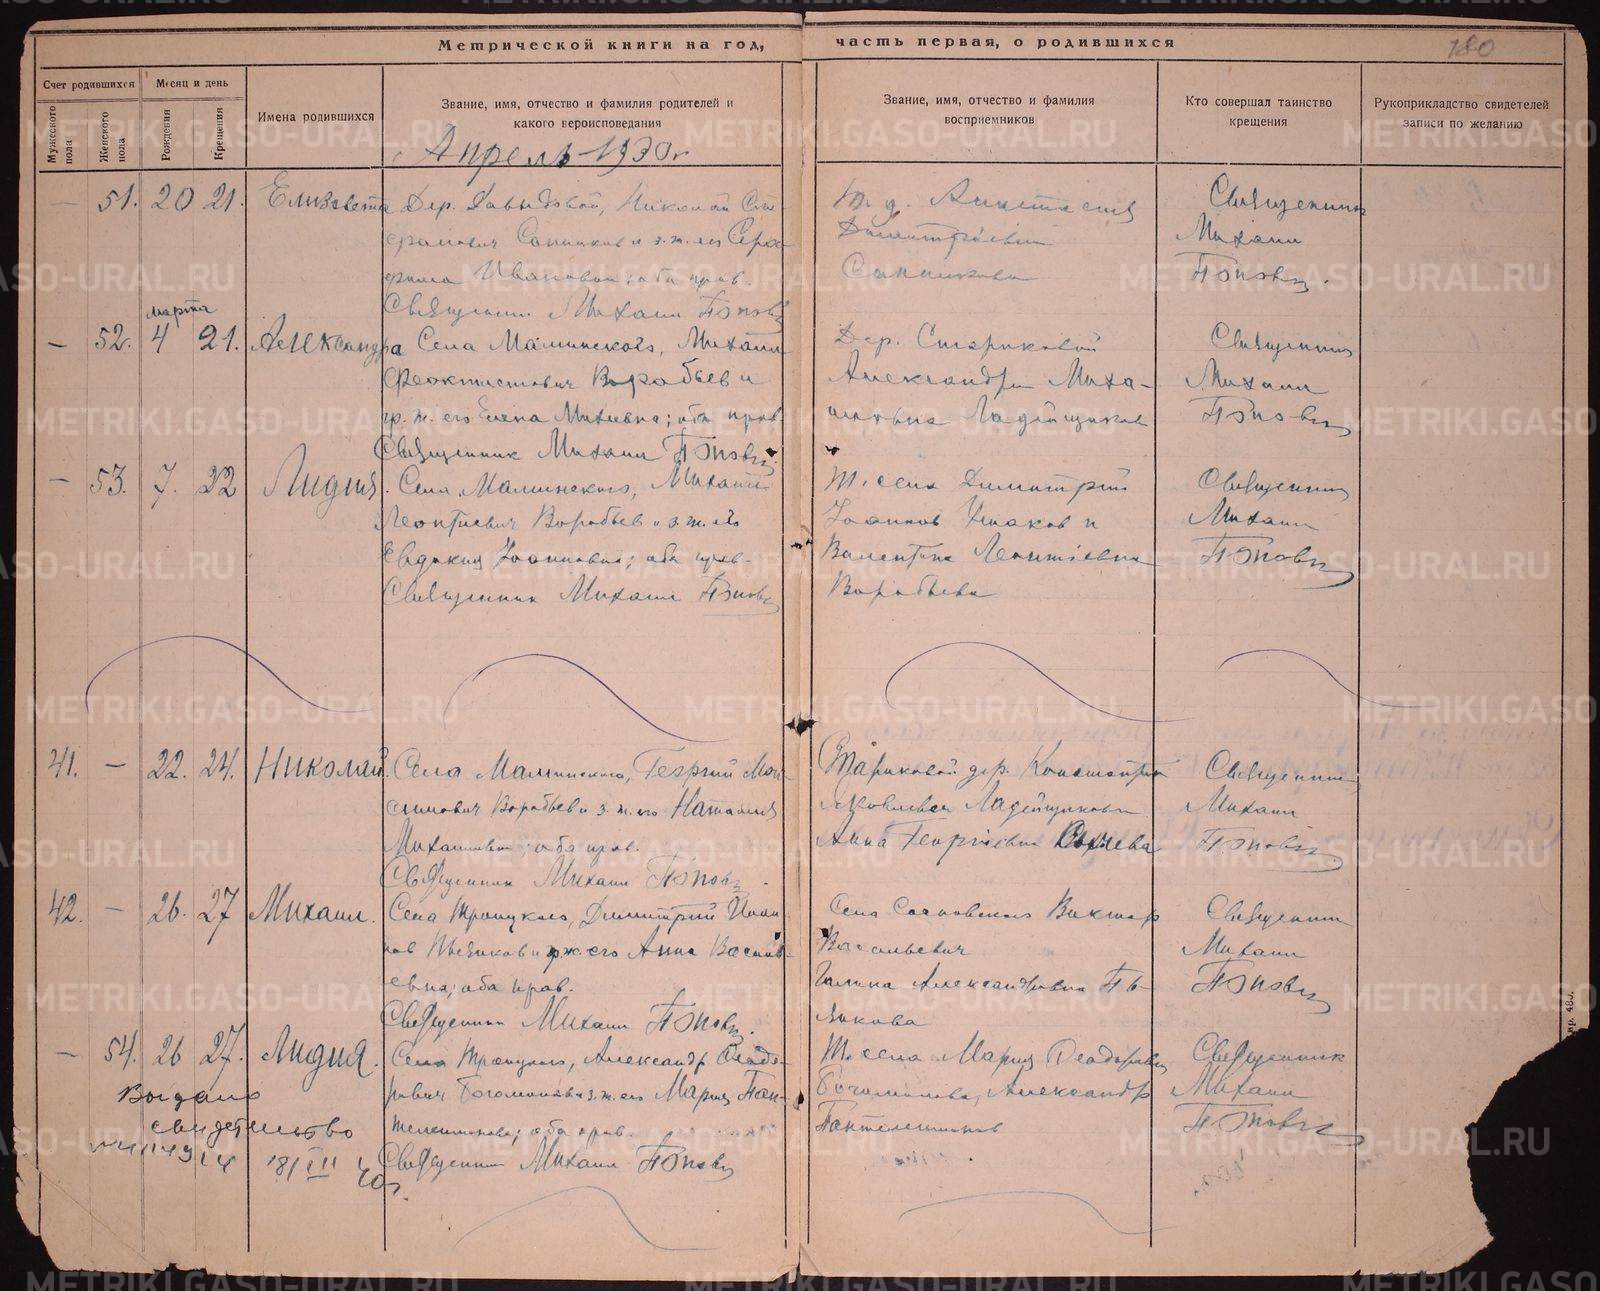 Метрической книги на год, часть первая, о родившихся
180
Счет родившихся
Месяц и день
Мужеского пола
Женского пола
Рождения
Крещения
Имена родившихся
Звание, имя, отчество и фамилия родителей и
какого вероисповедания
Звание, имя, отчество и фамилия
восприемников
Кто совершал таинство
крещения
Рукоприкладство свидетелей
записи по желанию
Апрель 1930 г
— 51. 20 21. Елизавета
Дер. Давыдовой, Николай
Иванова; оба прав.
Священник Михаил Попов
Т. д. Анастасия
Димитріевна
Священник
Михаил
Попов
марта
— 52. 4 21. Александра
Села Маминского, Михаил
Феоктистович Воробьев и
его Елена; оба прав
Священник Михаил Попов
Дер. Стариковой
Александра Миха-
Ладейщикова
Священник
Михаил
Попов
— 53. 7. 22 Лидия.
Села Маминского, Михаил
Леонтиевич Воробьев и з. ж. его
Евдокия Иоанновна; оба прав.
Священник Михаил Попов
Т. села Димитрий
Иоаннов и
Валентина Леонтіевна
Воробьева
Священник
Михаил
Попов
41. — 22. 24. Николай
Села Маминского, Георгий Мак-
симович Воробьев и з. ж. его Наталия
Михаиловна; оба прав.
Священник Михаил Попов
Стариковой дер. Константин
Яковлевич Ладейщиков
Анна Георгіевна
Священник
Михаил
Попов
42. — 26. 27 Михаил.
Села Троицкого, Димитрий Иоан-
нов Пьянков и его Анна Василь-
евна; оба прав.
Священник Михаил Попов.
Села Сосновского Виктор
Васильевич
Галина Александровна Пь-
янкова
Священник
Михаил
Попов
— 54. 26 27. Лидия.
Села Троицкого, Александр Феодо-
рович Богомолов и з. ж. его Мария Пан-
телеимонова; оба прав.
Священник Михаил Попов
Т. села Мария Феодоровна
Богомолова, Александр
Пантелеимонов
Священник
Михаил
Попов
Выдано
свидетельство
18/III 40 г.
METRIKI.GASO-URAL.RU